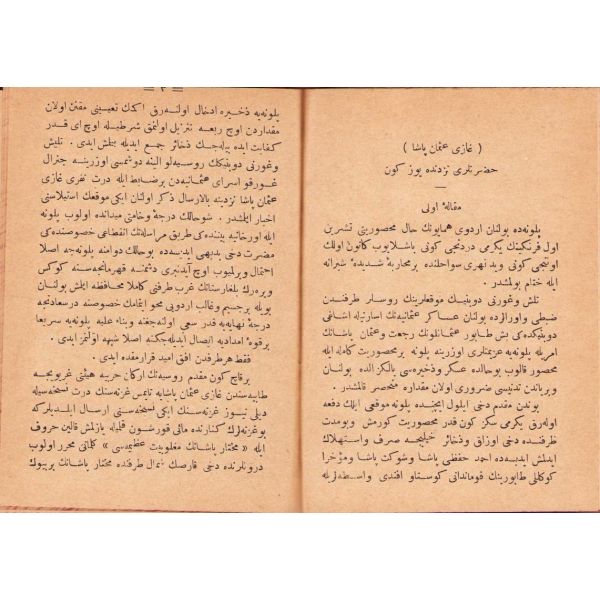 ( غازی عثمان پاشا )
حضرتلری نزدنده یوز کون
مقالهٔ اولی
پلونه‌ده بولنان اردوی همایونك حال محصوریتی تشرین
اول فرنکینك یکرمی دردنجی کونی باشلایوب کانون اولك
اوننجی کونی وید نهری سواحلنده بر محاربهٔ شدیدهٔ شیرانه
ایله ختام بولمشدر .
تلش وغورنی دوبنیك موقعلرینك روسلر طرفندن
ضبطی واورالرده بولنان عساکر عثمانیه‌نك اسارتیله اشاغی
دوبنیکده‌کی بش طابور عثمانلونك رجعت وعثمان پاشانك
امریله پلونه‌یه عزیمتلری اوزرینه پلونه بر محصوریت کامله ایله
محصور قالوب بوحالده عسکر وذخیره‌سی یالکز الده بولنان
ویریاندن تدنیسی ضروری اولان مقداره منحصر قالمشدر .
بوندن مقدم دخی ایلول ایچنده پلونه موقعی ایلك دفعه
اوله‌رق یکرمی سکز کون قدر محصوریت کورمش وبومدت
ظرفنده دخی اوزاق وذخائر خیلیجه صرف واستهلاك
ایدلمش ایدیسه‌ده احمد حفظی پاشا وشوکت پاشا ومؤخرا
کوکللی طابورینك قوماندانی کوستاو افندی واسطه‌لریله
— ٢ —
پلونه‌یه ذخیره ادخال اولنه‌رق اکمك تعیینی مقنن اولان
مقداردن اوچ ربعه تنزیل اولنمق شرطیله اوچ ای قدر
کفایت ایده بیله‌جك ذخائر جمع ایدیله بتلمش ایدی . تلیش
وغورنی دوبنیکك روسیه‌لو الینه دوشمسی اوزرینه جنرال
غورقو اسرای عثمانیه‌دن بر ضابط ایله درت نفری غازی
عثمان پاشا نزدینه بالارسال ذکر اولنان ایکی موقعك استیلاسنی
اخبار ایتمشدر . شوحالك درجهٔ وخامتی میدانده اولوب پلونه
ایله اورخانیه بیننده‌کی طریق مراسله‌نك انقطاعی خصوصنده‌کی
مضرت دخی بدیهی ایدیسه‌ده بوحالك دوامنه پلونه‌جه اصلا
احتمال ویرلمیوب اوچ آیدنبری دشمنه قهرمانجه‌سنه کوکس
ویره‌رك بلغارستانك غرب طرفنی کاملا محافظه ایلمش بولنان
بویله بر جسیم وغالب اردویی محو ایتمامك خصوصنه درسعادتجه
درجهٔ نهایه‌یه قدر سعی اولنه‌جغنه وبناء علیه پلونه‌یه سریعا
بر قوهٔ امدادیه ایصال ایدیله‌جکنه اصلا شبهه اولنمز ایدی .
فقط هر طرفدن افق امید قرارمقده ایدی .
بر قاچ کون مقدم روسیه‌نك ارکان حربیه هیئتی غریویجه
طابیه‌سندن غازی عثمان پاشایه تایمس غزته‌سنك درت نسخه‌سیله
دیلی نیوز غزته‌سنك ایکی نسخه‌سنی ارسال ایلدیلرکه
بوغزته‌لرك کنارنده مائی قورشون قلمیله یازلمش قالین حروف
ایله « مختار پاشانك مغلوبیت عظیمه‌سی » کلماتی محرر اولوب
درونلرنده دخی قارصك شمال طرفنده مختار پاشانك بر بیوك